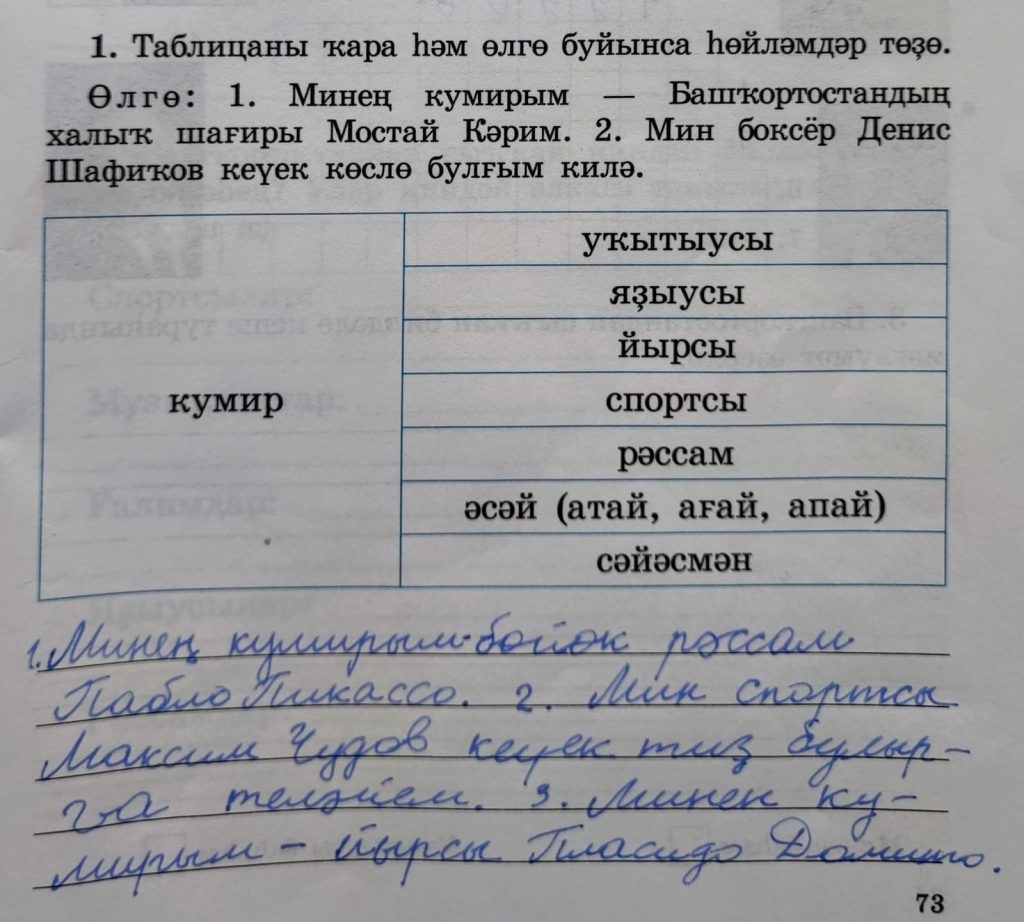 1. Таблицаны ҡара һәм өлгө буйынса һөйләмдәр төҙө.
Өлгө: 1. Минең кумирым — Башҡортостандың
халыҡ шағиры Мостай Кәрим. 2. Мин боксёр Денис
Шафиҡов кеүек көслө булғым килә.
уҡытыусы
яҙыусы
йырсы
кумир
спортсы
рәссам
әсәй (атай, ағай, апай)
сәйәсмән
1. Минең кумирым-бөйөк рәссам
Пабло Пикассо. 2. Мин спортсы
Максим Чудов кеүек тиҙ булыр-
ға теләйем. 3. Минең ку-
мирым – йырсы Пласидо Доминго.
73